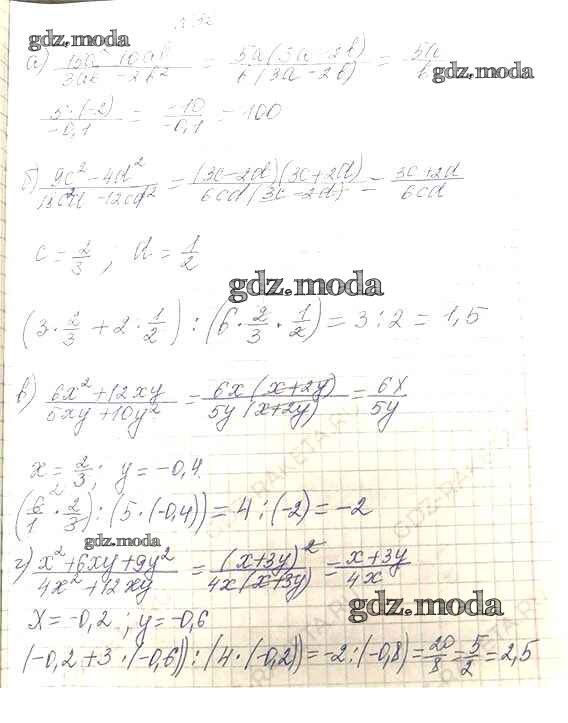 gdz.moda
а) (15a² - 10ab)/(3ab - 2b²) = 5a(3a - 2b)/b(3a - 2b) = 5a/b
gdz.moda
5·(-2)/-0,1 = -10/-0,1 = 100
б) (9c² - 4d²)/(18c²d - 12cd²) = (3c-2d)(3c+2d)/6cd(3c-2d) = (3c+2d)/6cd
c = 2/3 ; d = 1/2
gdz.moda
(3·2/3 + 2·1/2) : (6·2/3·1/2) = 3:2 = 1,5
в) (6x² + 12xy)/(5xy + 10y²) = 6x(x+2y)/5y(x+2y) = 6x/5y
x = 2/3 ; y = -0,4
(6/1 · 2/3) : (5·(-0,4)) = 4:(-2) = -2
gdz.moda
г) (x² + 6xy + 9y²)/(4x² + 12xy) = (x+3y)²/4x(x+3y) = (x+3y)/4x
x = -0,2 ; y = -0,6
gdz.moda
(-0,2 + 3·(-0,6)) : (4·(-0,2)) = -2:(-0,8) = 20/8 = 5/2 = 2,5
GDZ-RAKETA.RU